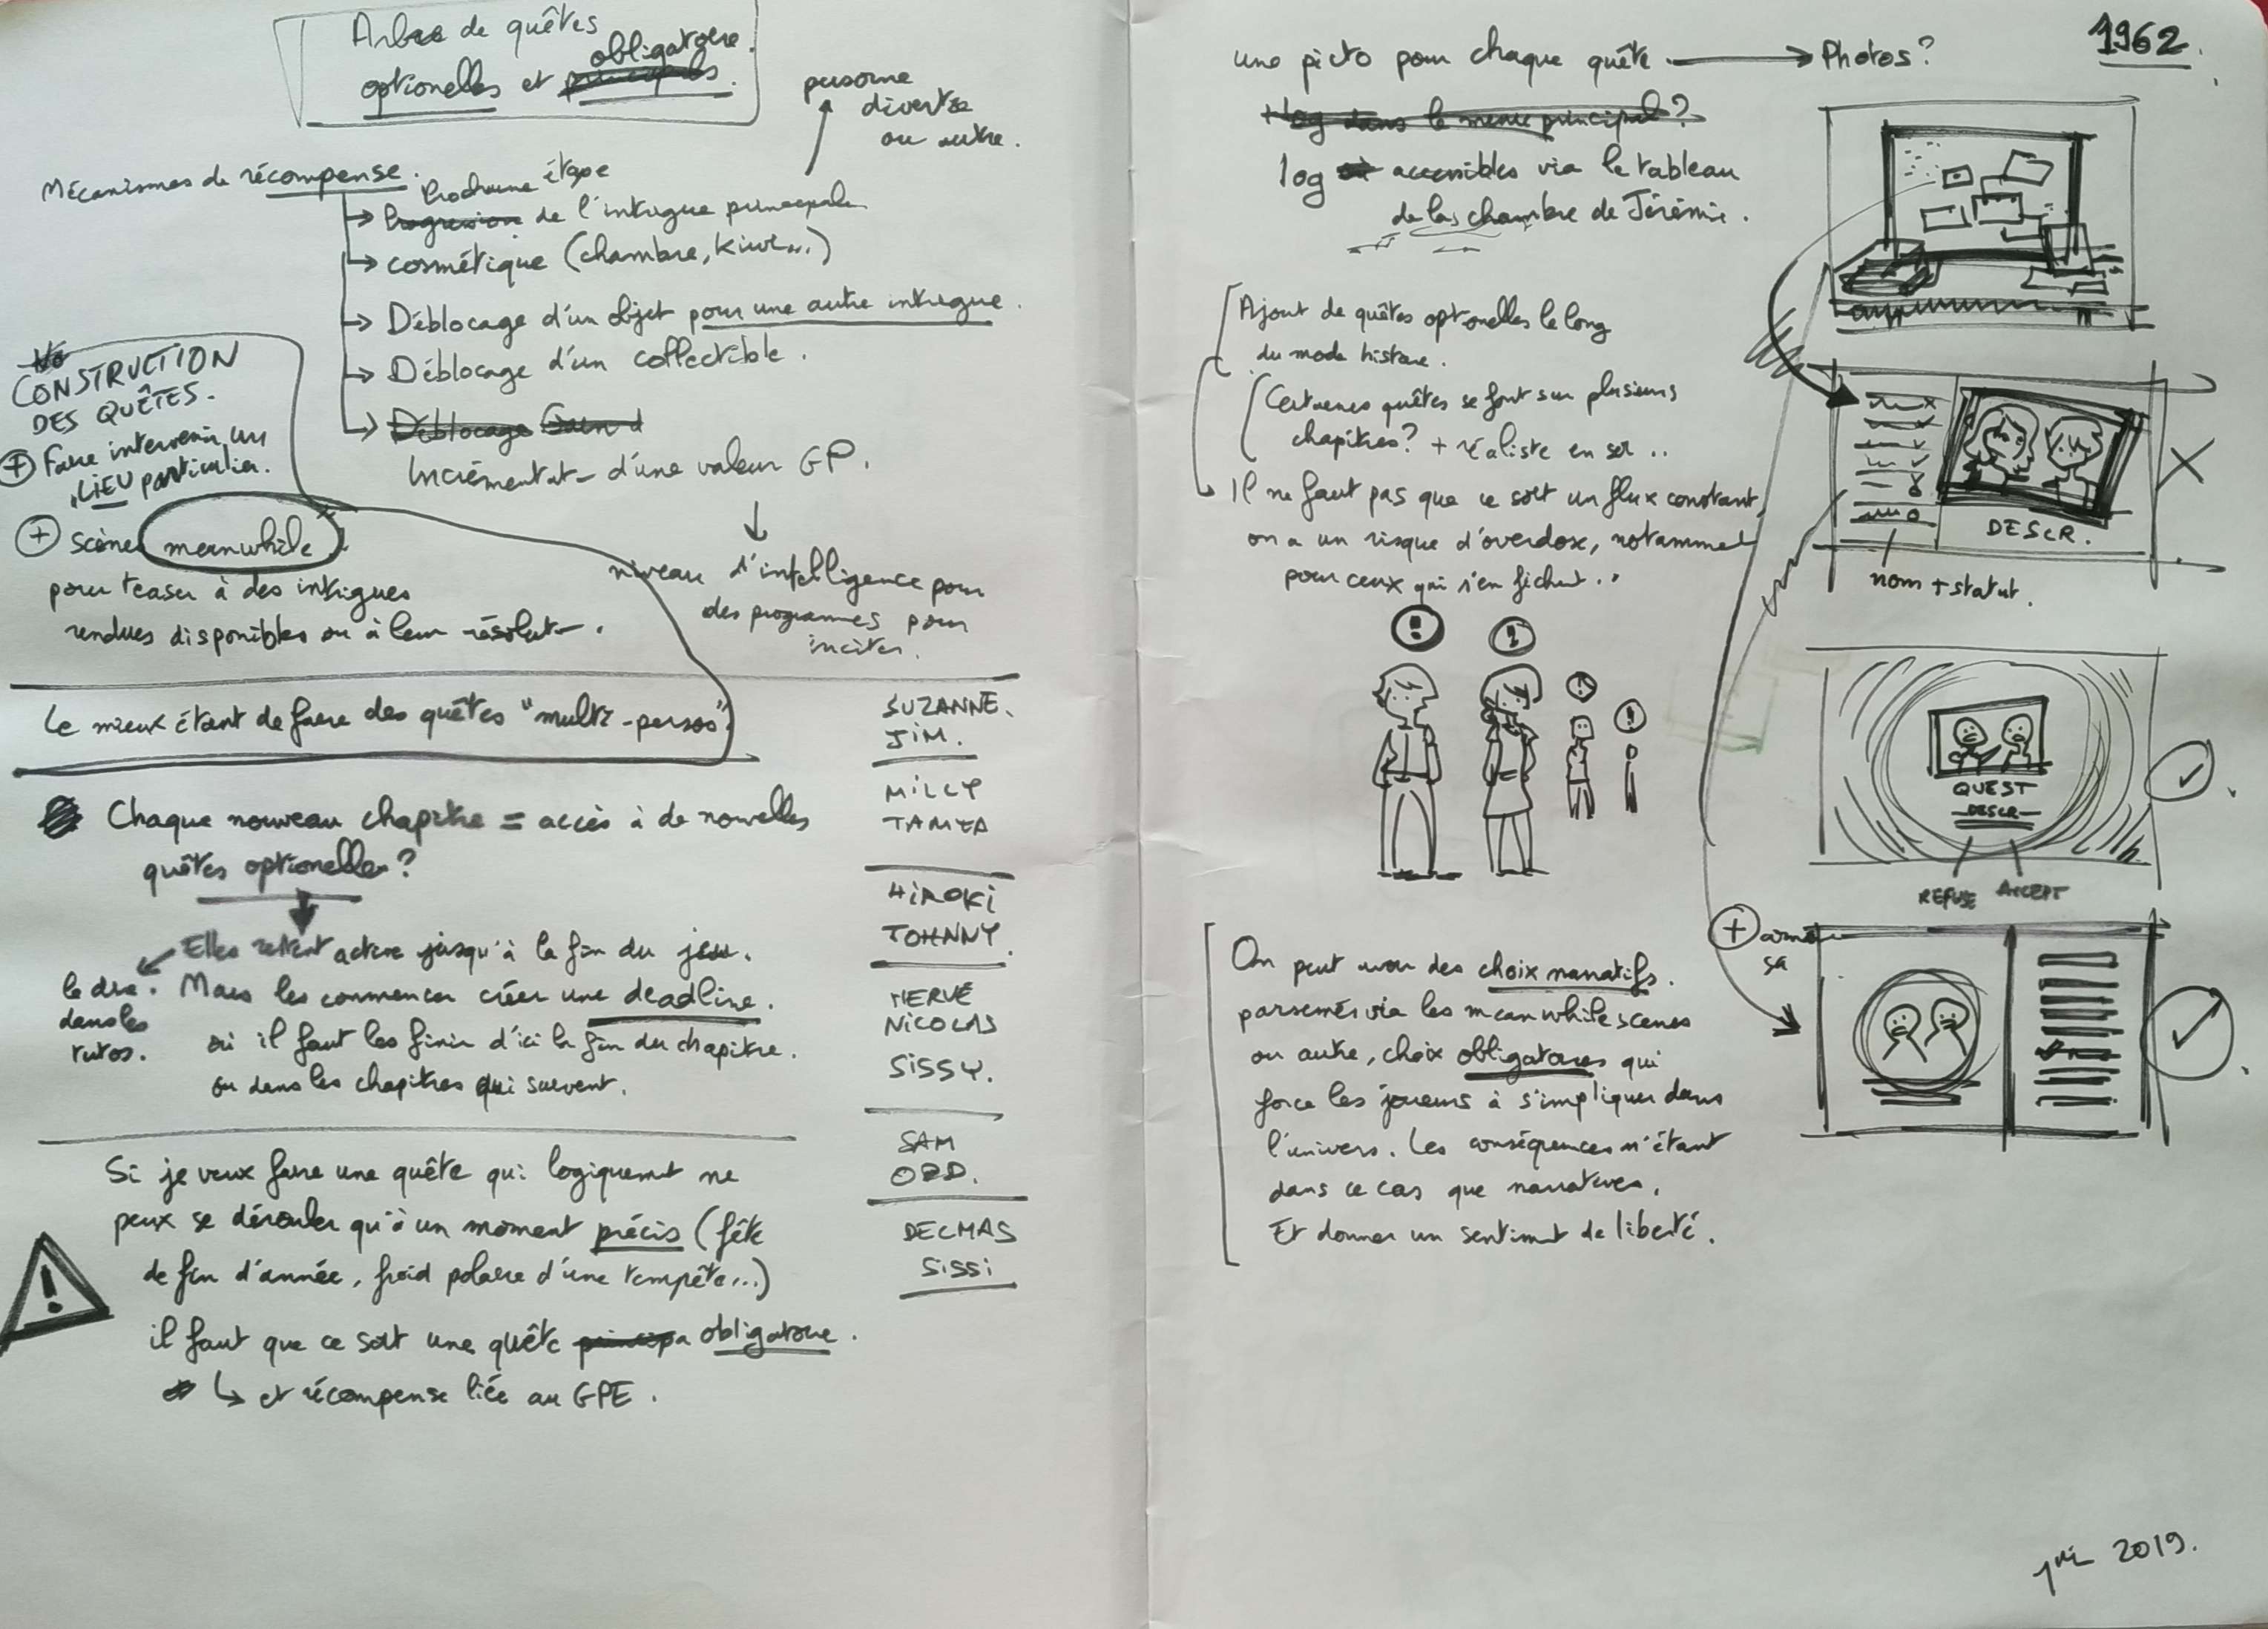 Arbre de quêtes
optionelles et principales obligatoire.
personne
divertie
ou autre.
Mécanismes de récompense.
Prochaine étape
→ Progression de l'intrigue principale
→ cosmétique (chambre, kiwi...)
→ Déblocage d'un objet pour une autre intrigue.
→ Déblocage d'un collectible.
→ Déblocage
Incrémentat- d'une valeur GP.
↓
niveau d'intelligence pour
des programmes pour
inciter.
CONSTRUCTION
DES QUÊTES.
+ Faire intervenir un
LIEU particulier.
+ scènes meanwhile
pour teaser à des intrigues
rendues disponibles ou à leur résolut-.
Le mieux étant de faire des quêtes "multi-persos".
Chaque nouveau chapitre = accès à de nouvelles
quêtes optionelles?
Elles restent active jusqu'à la fin du jeu.
le dire.
dans les
tutos.
Mais les commencer créer une deadline.
où il faut les finir d'ici la fin du chapitre.
ou dans les chapitres qui suivent.
Si je veux faire une quête qui logiquement ne
peux se dérouler qu'à un moment précis (fête
de fin d'année, froid polaire d'une tempête...)
il faut que ce soit une quête principa obligatoire.
↳ et récompense liée au GPE.
!
SUZANNE.
JIM.
MILLY
TAMIA
HIROKI
JOHNNY.
HERVÉ
NICOLAS
SISSY.
SAM
ODD.
DELMAS
SISSI
1962.
une picto pour chaque quête → Photos?
+ log dans le menu principal?
log accessibles via le tableau
de la chambre de Jérémie.
Ajout de quêtes optionelles le long
du mode histoire.
Certaines quêtes se font sur plusieurs
chapitres? + réaliste en soi..
Il ne faut pas que ce soit un flux constant,
on a un risque d'overdose, notamment
pour ceux qui s'en fichent..
! ! ! !
DESCR.
nom + statut.
QUEST
DESCR
REFUSE ACCEPT
+
sa
On peut avoir des choix narratifs.
parsemés via les meanwhile scenes
ou autre, choix obligatoires qui
force les joueurs à s'impliquer dans
l'univers. Les conséquences n'étant
dans ce cas que narratives.
Et donner un sentiment de liberté.
2019.